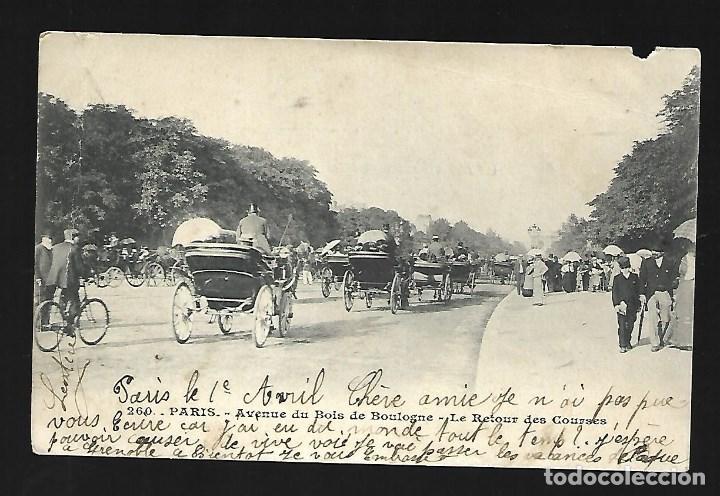 Paris le 1e Avril Chère amie Je n'ai pas pue
260. - PARIS. - Avenue du Bois de Boulogne - Le Retour des Courses
vous Ecrire car j'ai eu du monde tout le temp ! J'espère
pouvoir causer de vive voie je vais passer les vacances de Paque
a Grenoble a Bientot Je vous Embrasse
todocoleccion.net